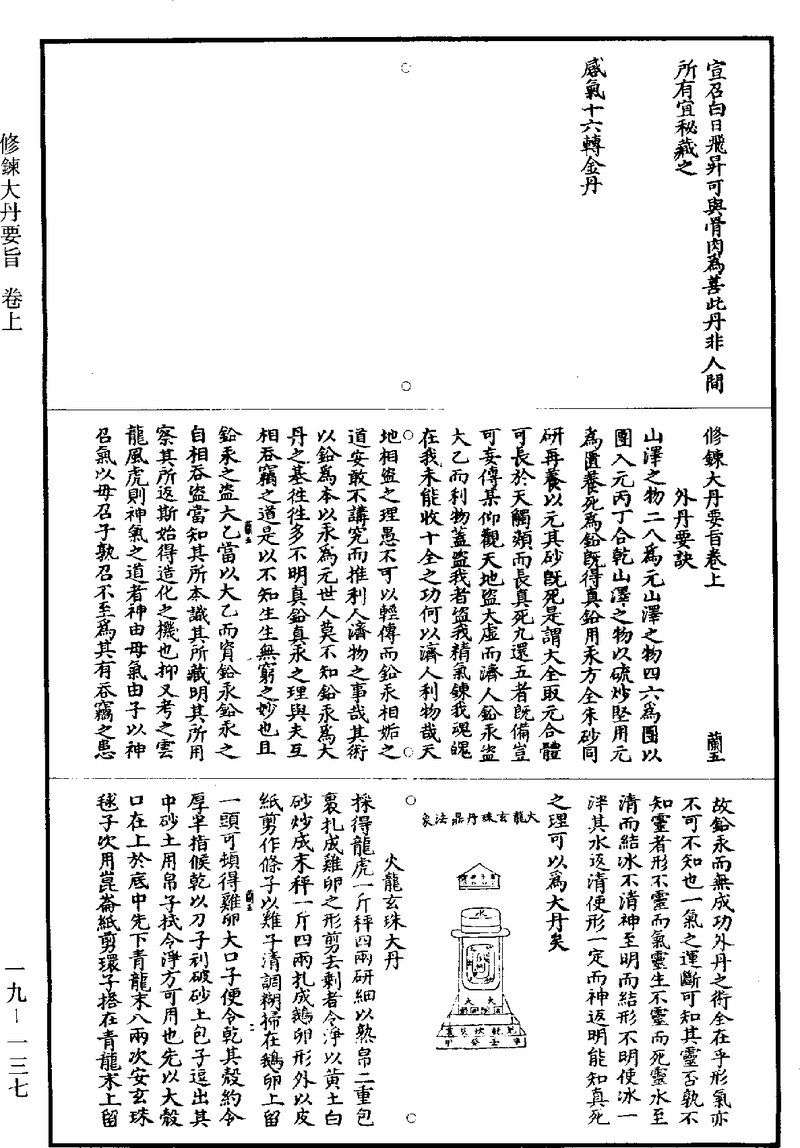 宣召白日飛昇可與骨肉爲善此丹非人間
所有宜秘藏之
感氣十六轉金丹
修鍊大丹要旨卷上
蘭五
外丹要訣
山澤之物二八爲元山澤之物四六爲團以
團入元丙丁合乾山澤之物以硫炒堅用元
爲匱養死爲鉛旣得真鉛用汞方全朱砂同
研再養以元其砂旣死是謂大全取元合體
可長於天觸類而長真死九還五者旣備豈
可妄傳某仰觀天地盜太虛而濟人鉛汞盜
大乙而利物蓋盜我者盜我精氣鍊我魂魄
在我未能收十全之功何以濟人利物哉天
地相盜之理愚不可以輕傳而鉛汞相姤之
道安敢不講究而推利人濟物之事哉其術
以鉛爲本以汞爲元世人莫不知鉛汞爲大
丹之基往往多不明真鉛真汞之理與夫互
相吞竊之道是以不知生生無窮之妙也且
鉛汞之盜大乙當以大乙而資鉛汞鉛汞之
自相吞盜當知其所本識其所藏明其所用
察其所返斯始得造化之機也抑又考之雲
龍風虎則神氣之道者神由母氣由子以神
召氣以母召子孰召不至爲其有吞竊之患
故鉛汞而無成功外丹之術全在乎形氣亦
不可不知也一氣之運斷可知其靈否孰不
知靈者形不靈而氣靈生不靈而死靈水至
清而結冰不清神至明而結形不明使冰一
泮其水返清使形一定而神返明能知真死
之理可以爲大丹矣
火龍玄珠丹鼎法象
火龍玄珠大丹
採得龍虎一斤秤四兩研細以熟帛二重包
裹扎成雞卵之形剪去剩者令淨以黄土白
砂炒成末秤一斤四兩扎成鵝卵形外以皮
紙剪作條子以雞子清調糊掃在鵝卵上留
一頭可頓得雞卵大口子便令乾其殼約令
厚半指候乾以刀子刋破砂上包子逗出其
中砂土用帛子拭令淨方可用也先以大殼
口在上於底中先下青龍末八兩次安玄珠
毬子次用崑崙紙剪環子搭在青龍末上留
修鍊大丹要旨　卷上
一九—一三七